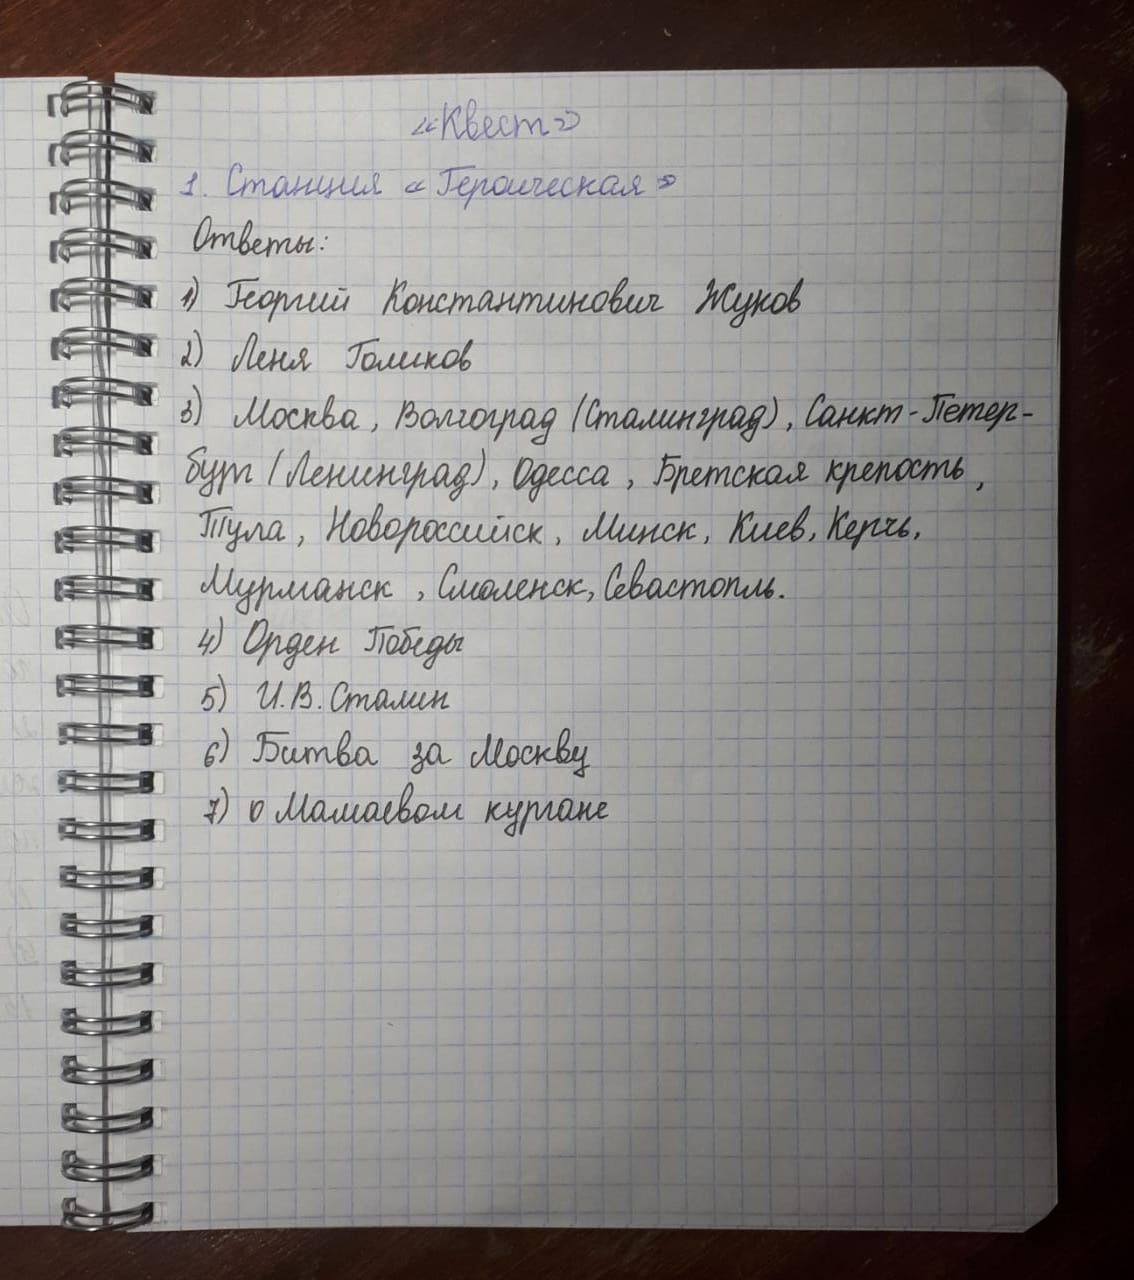 «Квест»
1. Станция «Героическая»
Ответы:
1) Георгий Константинович Жуков
2) Леня Голиков
3) Москва, Волгоград (Сталинград), Санкт-Петер-
бург (Ленинград), Одесса, Бретская крепость,
Тула, Новороссийск, Минск, Киев, Керчь,
Мурманск, Смоленск, Севастополь.
4) Орден Победы
5) И.В. Сталин
6) Битва за Москву
7) о Мамаевом кургане